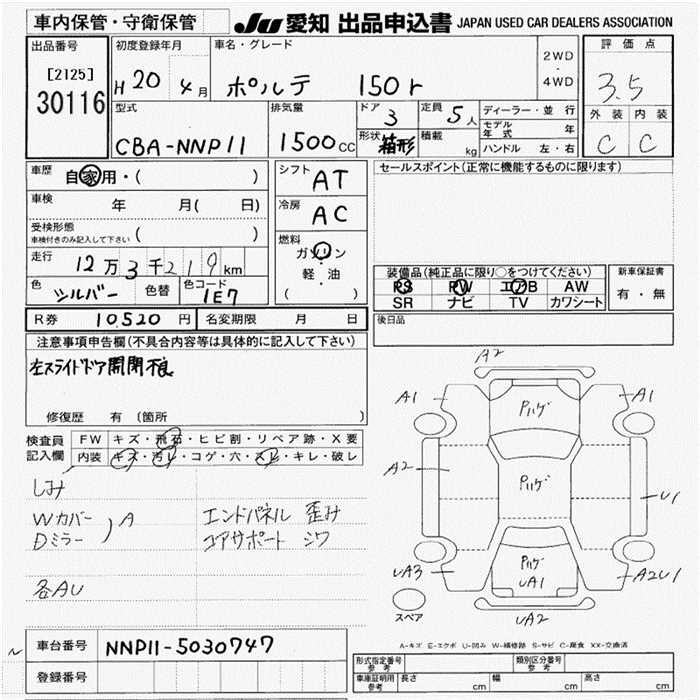 車内保管・守衛保管
JU 愛知 出品申込書 JAPAN USED CAR DEALERS ASSOCIATION
出品番号
[2125]
30116
初度登録年月
H20 4月
車名・グレード
ポルテ 150r
2WD
・
4WD
評価点
3.5
外装 内装
C C
型式
CBA-NNP11
排気量
1500cc
ドア
3
定員
5人
形状
箱形
積載
kg
ディーラー・並行
モデル年式 年
ハンドル 左・右
車歴
自家用・( )
車検 年 月( 日)
受検形態
車検付きのみ記入して下さい ( )
走行
12万3千219km
色
シルバー
色替
色コード
1E7
シフト
AT
冷房
AC
燃料
ガソリン
・
軽・油
( )
セールスポイント(正常に機能するものに限ります)
装備品(純正品に限り○をつけてください)
PS PW エアB AW
SR ナビ TV カワシート
新車保証書
有・無
R券 10,520円 名変期限 月 日
後日品
注意事項申告欄(不具合内容等は具体的に記入して下さい)
左スライドドア開閉不良
修復歴 有 〔箇所 〕
検査員
記入欄
FW キズ・飛石・ヒビ割・リペア跡・X要
内装 キズ・汚レ・コゲ・穴・スレ・キレ・破レ
しみ
Wカバー
Dミラー
A
エンドパネル 歪み
コアサポート シワ
各AU
A2
A1
A1
Pハゲ
A2
Pハゲ
U1
Pハゲ
UA1
UA3
A2U1
UA2
スペア
A-キズ E-エクボ U-凹み W-補修跡 S-サビ C-腐食 XX-交換済
車台番号 NNP11-5030747
登録番号
形式指定番号
参考
類別区分番号
参考
車庫証明用
参考
長さ cm 幅 cm 高さ cm